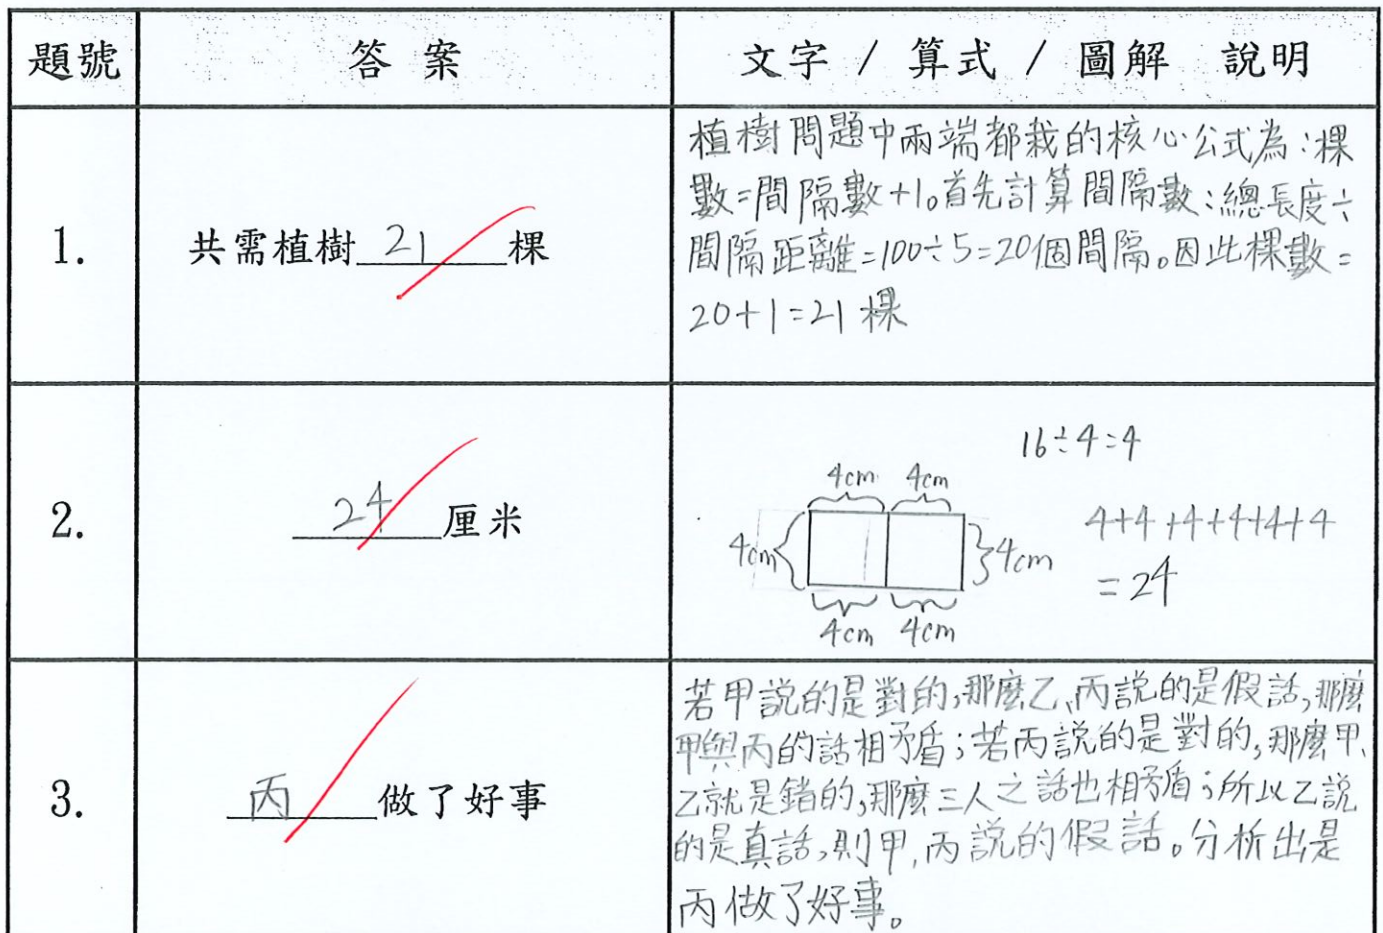 題號
答案
文字 / 算式 / 圖解 說明
1.
共需植樹 21 棵
植樹問題中兩端都栽的核心公式為：棵
數=間隔數+1。首先計算間隔數：總長度÷
間隔距離=100÷5=20個間隔。因此棵數=
20+1=21棵
2.
24 厘米
16÷4=4
4cm 4cm
4cm 4cm
4cm 4cm
4+4+4+4+4+4
=24
3.
丙 做了好事
若甲說的是對的，那麼乙、丙說的是假話，那麼
甲與丙的話相矛盾；若丙說的是對的，那麼甲、
乙就是錯的，那麼三人之話也相矛盾；所以乙說
的是真話，則甲，丙說的假話。分析出是
丙做了好事。